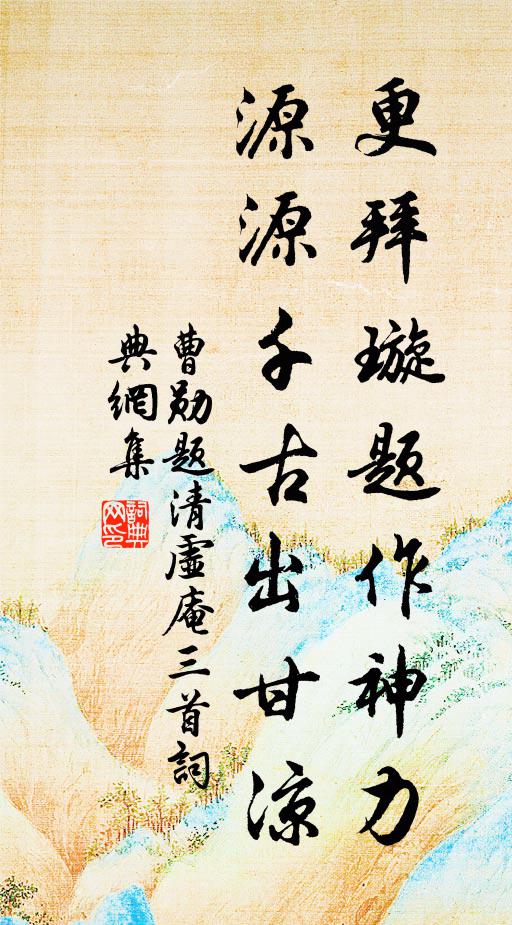 更拜璇题作神力
源源千古出甘凉
曹勋题清虚庵三首词
典網集
詞典網印